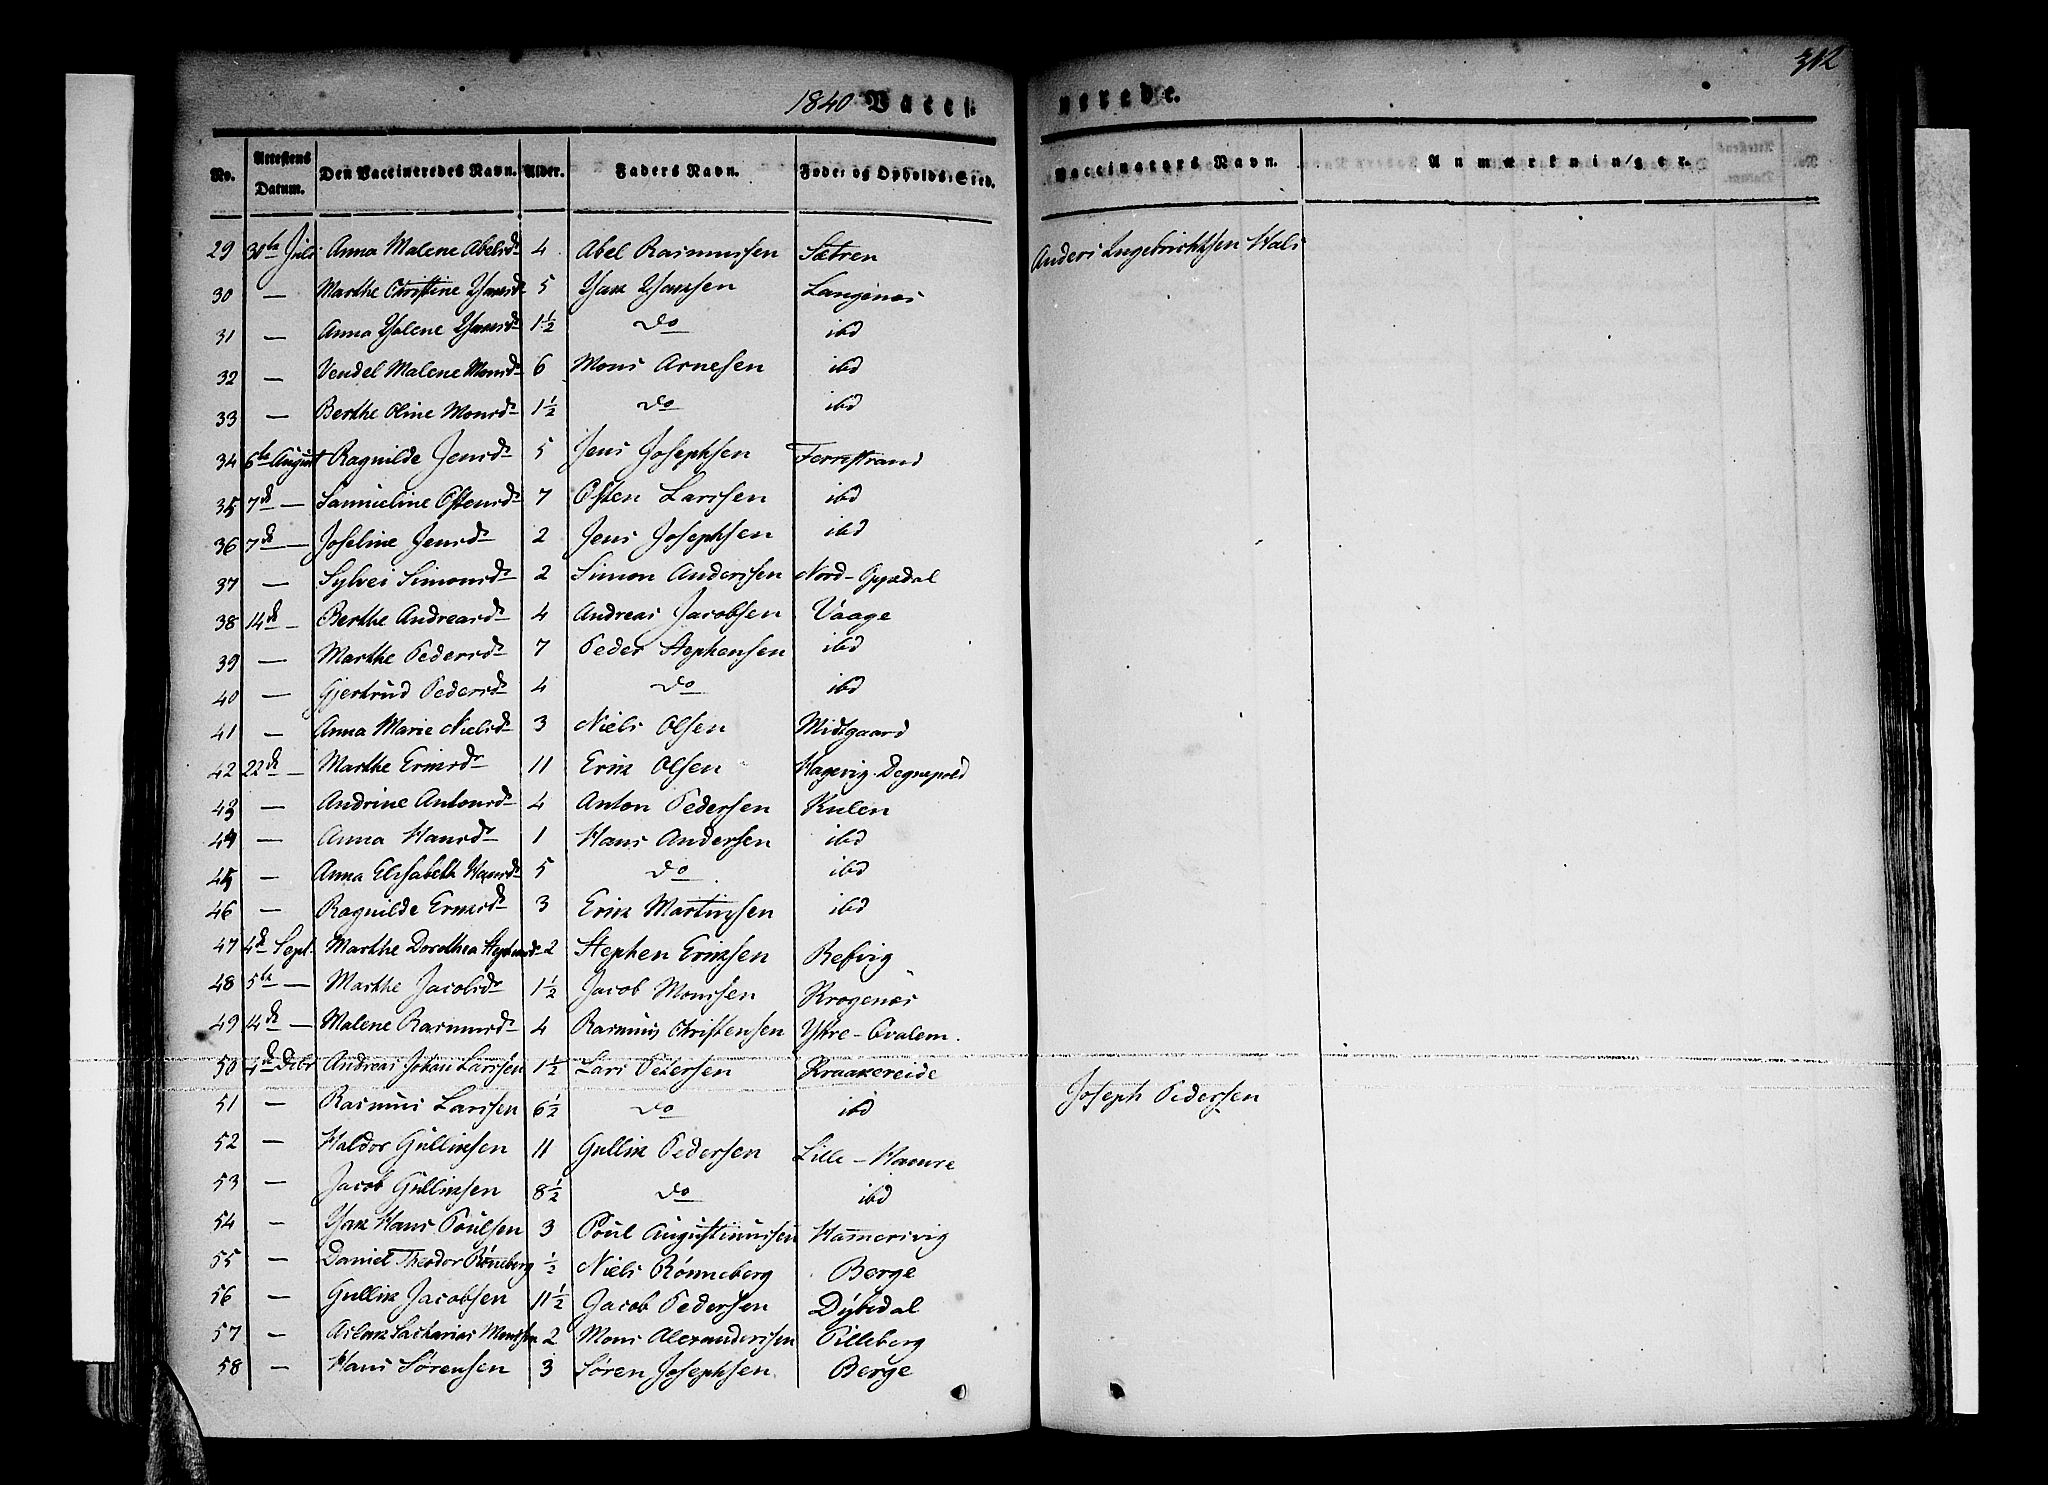 1840 Vacci-
nerede.
312
No. Attestens Datum. Den Vaccineredes Navn. Alder. Faders Navn. Føde- og Opholds-Sted. Vaccinateurs Navn. Anmærkninger.
29 30te Juli Anna Malene Abelsdr 4 Abel Rasmussen Sætren Anders Ingebrichtsen Hals
30 — Marthe Christine Isaksdr 5 Isak Isaksen Langenæs
31 — Anna Malene Isaksdr 1½ do ibd
32 — Vendel Malene Monsdr 6 Mons Arnesen ibd
33 — Berthe Oline Monsdr 1½ do ibd
34 6te August Ragnilde Jensdr 5 Jens Josephsen Ferrestrand
35 7de — Samueline Ostensdr 7 Osten Larssen ibd
36 7de — Joseline Jensdr 2 Jens Josephsen ibd
37 — Sylvei Simonsdr 2 Simon Anderssen Nord-Oppedal
38 14de — Berthe Andreasdr 4 Andreas Jacobsen Vaage
39 — Marthe Pedersdr 7 Peder Stephensen ibd
40 — Gjertrud Pedersdr 4 do ibd
41 — Anna Marie Nielsdr 3 Niels Olsen Midtgaard
42 22de — Marthe Eriksdr 11 Erik Olsen Hagevig Degnepold
43 — Andrine Antonsdr 4 Anton Pedersen Kulen
44 — Anna Hansdr 1 Hans Andersen ibd
45 — Anna Elisabeth Hansdr 5 do ibd
46 — Ragnilde Eriksdr 3 Erik Martinsen ibd
47 4de Sept. Marthe Dorothea Stephensdr 2 Stephen Eriksen Refvig
48 5te — Marthe Jacobsdr 1½ Jacob Monsen Krogenæs
49 14de — Malene Rasmusdr 4 Rasmus Christensen Ytre-Qvalem.
50 4de Dcbr Andreas Johan Larssen 1½ Lars Petersen Kraakereide
51 — Rasmus Larssen 6½ do ibd Joseph Pedersen
52 — Haldor Gullaksen 11 Gullik Pedersen Lille-Hamre
53 — Jacob Gulliksen 8½ do ibd
54 — Isak Hans Poulsen 3 Poul Augustinussen Hamersvig
55 — Daniel Theodor Rönneberg ½ Niels Rönneberg Berge
56 — Gullik Jacobsen 11½ Jacob Pedersen Dybedal
57 — Aslak Sacharias Monssen 2 Mons Alexanderssen Pilleberg
58 — Hans Sørensen 3 Søren Josephsen Berge